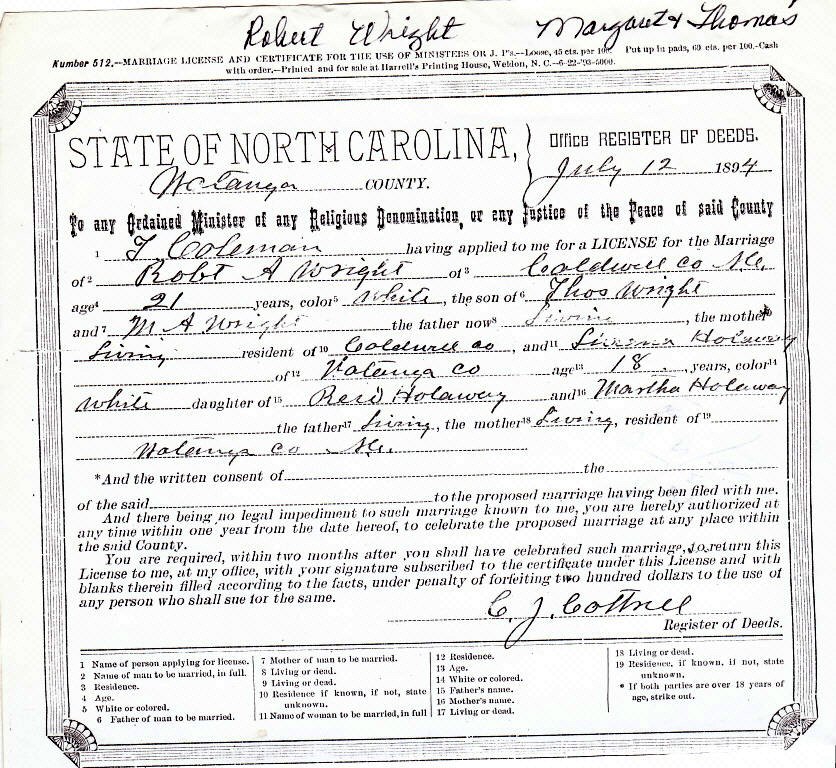 Robert Wright Margaret & Thomas
Number 512.--MARRIAGE LICENSE AND CERTIFICATE FOR THE USE OF MINISTERS OR J. P's.--Loose, 45 cts. per 100. Put up in pads, 60 cts. per 100.-Cash
with order.--Printed and for sale at Harrell's Printing House, Weldon, N. C.--6-22-'93-5000.
STATE OF NORTH CAROLINA,
Office REGISTER OF DEEDS.
Watauga COUNTY.
July 12 1894
To any Ordained Minister of any Religious Denomination, or any Justice of the Peace of said County
1 T Coleman having applied to me for a LICENSE for the Marriage
of2 Robt A Wright of3 Caldwell co N.C.
age4 21 years, color5 White, the son of6 Thos Wright
and7 M. A Wright the father now8 Living, the mother9
Living resident of10 Caldwell co, and11 Holaway
of12 Watauga co age13 18 years, color14
White daughter of15 Holaway and16 Martha Holaway
the father17 Living, the mother18 Living, resident of19
Watauga co N.C.
*And the written consent of the
of the said to the proposed marriage having been filed with me.
And there being no legal impediment to such marriage known to me, you are hereby authorized at
any time within one year from the date hereof, to celebrate the proposed marriage at any place within
the said County.
You are required, within two months after you shall have celebrated such marriage, to return this
License to me, at my office, with your signature subscribed to the certificate under this License and with
blanks therein filled according to the facts, under penalty of forfeiting two hundred dollars to the use of
any person who shall sue for the same.
C. J. Cottrell
Register of Deeds.
1 Name of person applying for license.
2 Name of man to be married, in full.
3 Residence.
4 Age.
5 White or colored.
6 Father of man to be married.
7 Mother of man to be married.
8 Living or dead.
9 Living or dead.
10 Residence if known, if not, state
unknown.
11 Name of woman to be married, in full
12 Residence.
13 Age.
14 White or colored.
15 Father's name.
16 Mother's name.
17 Living or dead.
18 Living or dead.
19 Residence, if known, if not, state
unknown.
* If both parties are over 18 years of
age, strike out.